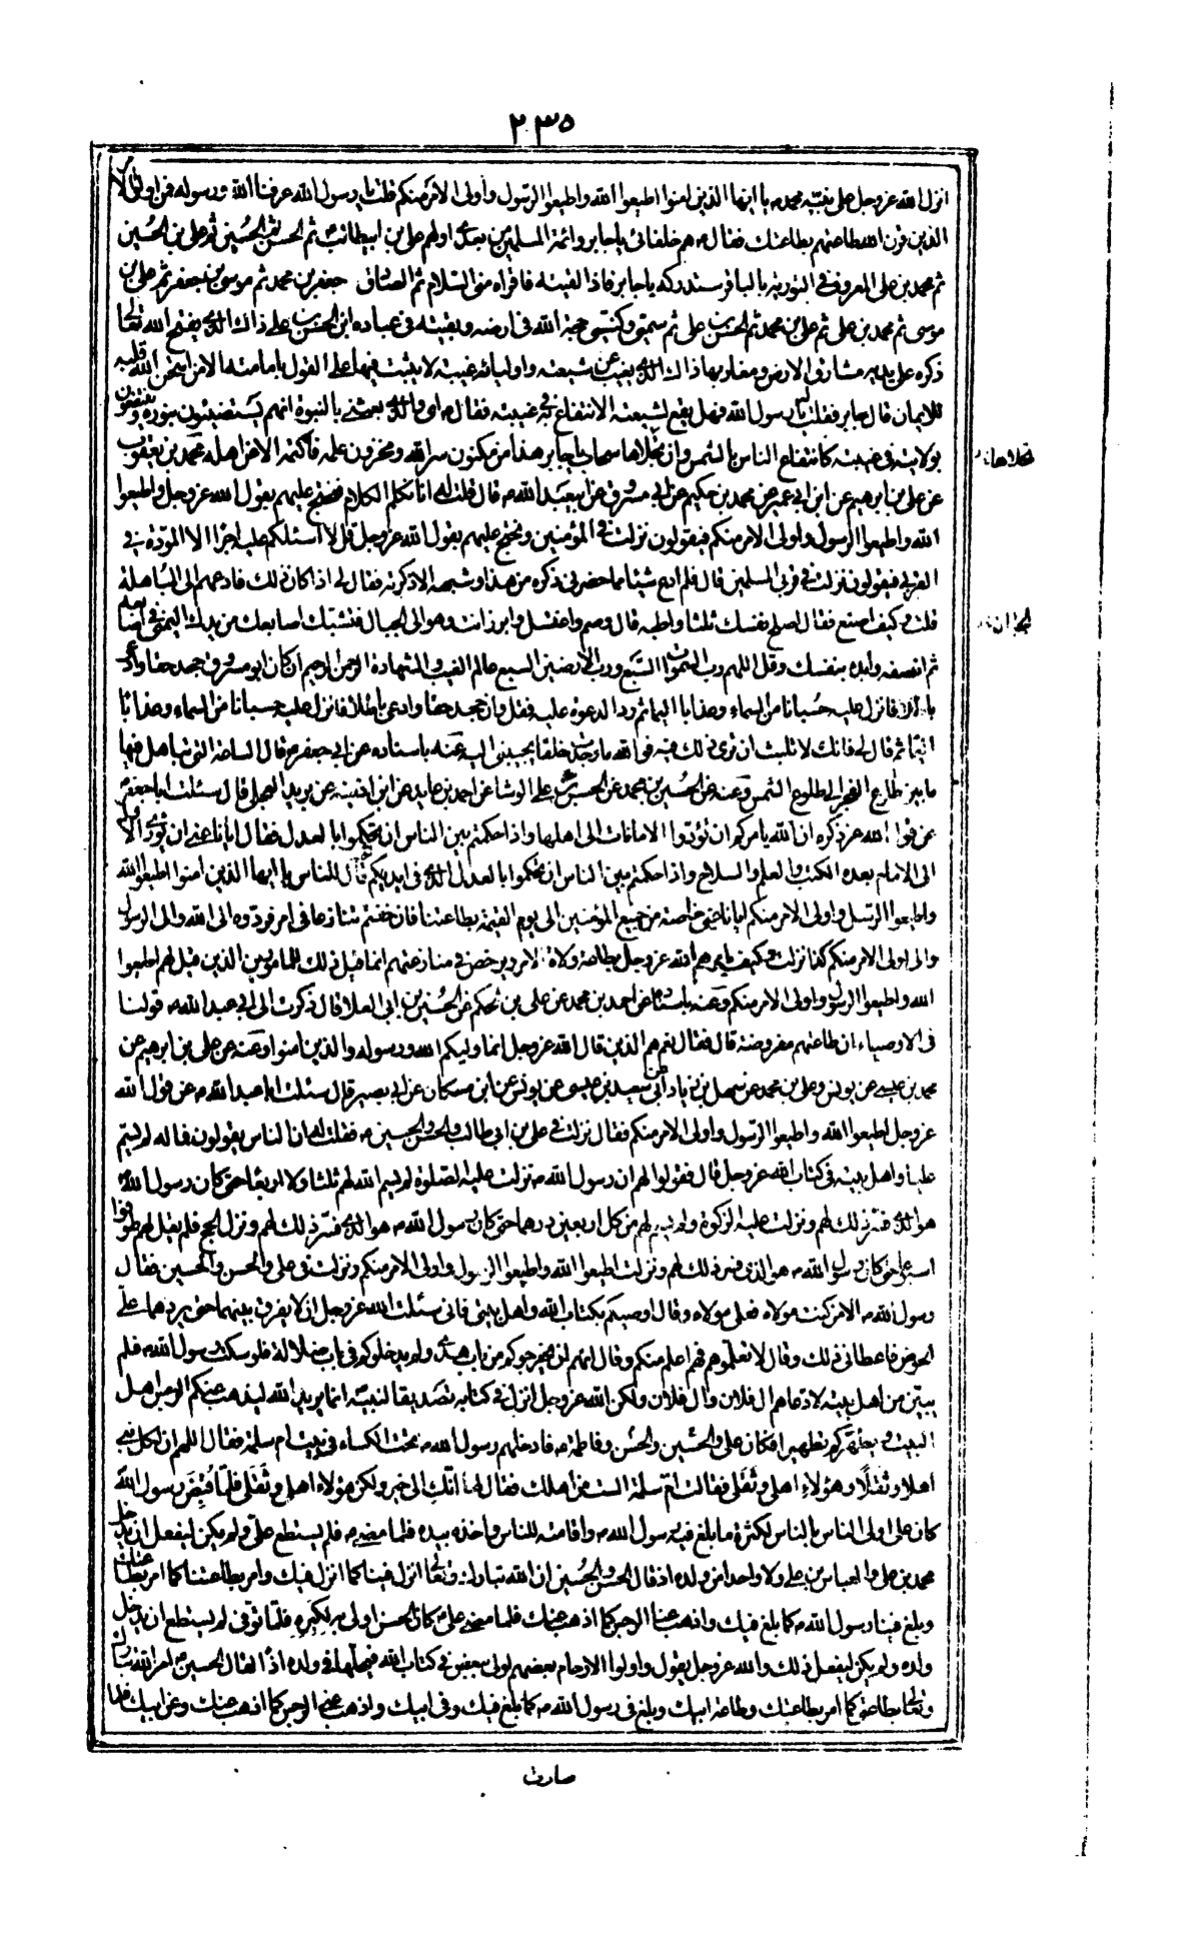 ٢٣٥
انزل الله عز وجل على نبيه محمد يا ايها الذين امنوا اطيعوا الله واطيعوا الرسول واولى الامر منكم قلت يا رسول الله عرفنا الله ورسوله فمن اولى الامر
الذين قرن الله طاعتهم بطاعتك فقال هم خلفائى يا جابر وائمة المسلمين من بعدى اولهم على بن ابيطالب ثم الحسن ثم الحسين ثم على بن الحسين
ثم محمد بن على المعروف فى التورية بالباقر ستدركه يا جابر فاذا لقيته فاقراه منى السلام ثم الصادق جعفر بن محمد ثم موسى بن جعفر ثم على بن
موسى ثم محمد بن على ثم على بن محمد ثم الحسن بن على ثم سميى وكنيى حجة الله فى ارضه وبقيته فى عباده ابن الحسن بن على ذاك الذى يفتح الله تعالى
ذكره على يديه مشارق الارض ومغاربها ذاك الذى يغيب عن شيعته واوليائه غيبة لا يثبت فيها على القول بامامته الا من امتحن الله قلبه
للايمان قال جابر فقلت يا رسول الله فهل يقع لشيعته الانتفاع به فى غيبته فقال اى والذى بعثنى بالنبوة انهم يستضيئون بنوره وينتفعون
بولايته فى غيبته كانتفاع الناس بالشمس وان تجلاها سحاب يا جابر هذا من مكنون سر الله ومخزون علمه فاكتمه الا عن اهله محمد بن يعقوب
عن على بن ابرهيم عن ابن ابى عمير عن محمد بن حكيم عن ابى مسروق عن ابيعبد الله قال قلت له انا نكلم الكلام فنحتج عليهم بقول الله عز وجل واطيعوا
الله واطيعوا الرسول واولى الامر منكم فيقولون نزلت فى المؤمنين ونحتج عليهم بقول الله عز وجل قل لا اسئلكم عليه اجرا الا المودة فى
القربى فيقولون نزلت فى قربى المسلمين قال فلم ادع شيئا مما حضرنى ذكره من هذا وشبهه الا ذكرته فقال لى اذا كان ذلك فادعهم الى المباهلة
قلت وكيف اصنع فقال اصلح نفسك ثلثا واطبه قال وصم واغتسل وابرز انت وهو الى الجبال فتشبك اصابعك من يدك اليمنى فى اصابعه
ثم انصفه وابدء بنفسك وقل اللهم رب السموات السبع ورب الارضين السبع عالم الغيب والشهادة الرحمن الرحيم ان كان ابو مسروق جحد حقا وادعى
باطلا فانزل عليه حسبانا من السماء وعذابا اليما ثم رد الدعوة عليه فقل وان جحد حقا وادعى باطلا فانزل عليه حسبانا من السماء وعذابا
اليما ثم قال لى فانك لا تلبث ان ترى ذلك فيه فو الله ما وجدت خلقا يجيبنى اليه عنه باسناده عن ابى جعفر قال الساعة التى تباهل فيها
ما بين طلوع الفجر الى طلوع الشمس وعنه عن الحسين بن محمد عن الحسن بن على الوشا عن احمد بن عايد عن ابن اذينة عن بريد العجلى قال سئلت ابا جعفر
عن قول الله عز ذكره ان الله يامركم ان تؤدوا الامانات الى اهلها واذا حكمتم بين الناس ان تحكموا بالعدل فقال ايانا عنى ان يؤدى الاول
الى الامام بعده الكتب والعلم والسلاح واذا حكمتم بين الناس ان تحكموا بالعدل الذى فى ايديكم ثم قال للناس يا ايها الذين امنوا اطيعوا الله
واطيعوا الرسول واولى الامر منكم ايانا عنى خاصة من جميع المؤمنين الى يوم القيمة بطاعتنا فان خفتم تنازعا فى امر فردوه الى الله والى الرسول
والى اولى الامر منكم كذا نزلت وكيف يامرهم الله عز وجل بطاعة ولاة الامر ويرخص فى منازعتهم انما قيل ذلك للمامورين الذين قيل لهم اطيعوا
الله واطيعوا الرسول واولى الامر منكم وعنه باسناده عن احمد بن محمد عن على بن الحكم عن الحسين بن ابى العلا قال ذكرت الى ابى عبد الله قولنا
فى الاوصياء ان طاعتهم مفروضة قال فقال نعم هم الذين قال الله عز وجل انما وليكم الله ورسوله والذين امنوا وعنه عن على بن ابرهيم عن
محمد بن عيسى عن يونس وعلى بن محمد عن سهل بن زياد ابى سعيد عن محمد بن عيسى عن يونس عن ابن مسكان عن ابى بصير قال سئلت ابا عبد الله عن قول الله
عز وجل اطيعوا الله واطيعوا الرسول واولى الامر منكم فقال نزلت فى على بن ابى طالب والحسن والحسين فقلت له ان الناس يقولون فما له لم يسم
عليا واهل بيته فى كتاب الله عز وجل قال فقولوا لهم ان رسول الله نزلت عليه الصلوة لم يسم الله لهم ثلثا ولا اربعا حتى كان رسول الله
هو الذى فسر ذلك لهم ونزلت عليه الزكوة ولم يسم لهم من كل اربعين درهما حتى كان رسول الله هو الذى فسر ذلك لهم ونزل الحج فلم يقل لهم طوفوا
اسبوعا حتى كان رسول الله هو الذى فسر ذلك لهم ونزلت اطيعوا الله واطيعوا الرسول واولى الامر منكم ونزلت فى على والحسن والحسين فقال
رسول الله الا من كنت مولاه فعلى مولاه وقال اوصيكم بكتاب الله واهل بيتى فانى سئلت الله عز وجل ان لا يفرق بينهما حتى يردهما على
الحوض فاعطانى ذلك وقال لا تعلموهم فهم اعلم منكم وقال انهم لن يخرجوكم من باب هدى ولم يدخلوكم فى باب ضلالة فلو سكت رسول الله فلم
يبين من اهل بيته لادعاهم ال فلان وال فلان ولكن الله عز وجل انزل فى كتابه تصديقا لنبيه انما يريد الله ليذهب عنكم الرجس اهل
البيت ويطهركم تطهيرا فكان على والحسين والحسن وفاطمة فادخلهم رسول الله تحت الكساء فى بيت ام سلمة فقال اللهم ان لكل نبى
اهلا وثقلا وهؤلاء اهلى وثقلى فقالت ام سلمة الست من اهلك فقال لها انك الى خير ولكن هؤلاء اهلى وثقلى فلما قبض رسول الله
كان على اولى الناس بالناس لكثرة ما بلغ فيه رسول الله واقامته للناس واخذه بيده فلما مضى فلم يستطع على ولم يكن ليفعل ان يدخل
محمد بن على والعباس بن على ولا واحدا من ولده اذ قال الحسن والحسين ان الله تبارك وتعالى انزل فينا كما انزل فيك وامر بطاعتنا كما امر بطاعتك
وبلغ فينا رسول الله كما بلغ فيك واذهب عنا الرجس كما اذهب عنك فلما مضى على كان الحسن اولى بها لكبره فلما توفى لم يستطع ان يدخل
ولده ولم يكن ليفعل ذلك والله عز وجل يقول واولوا الارحام بعضهم اولى ببعض فى كتاب الله فيجعلها فى ولده اذا لقال الحسين امر الله تبارك
وتعالى بطاعتى كما امر بطاعتك وطاعة ابيك وبلغ فى رسول الله كما بلغ فيك وفى ابيك واذهب عنى الرجس كما اذهب عنك وعن ابيك فلما
صارت